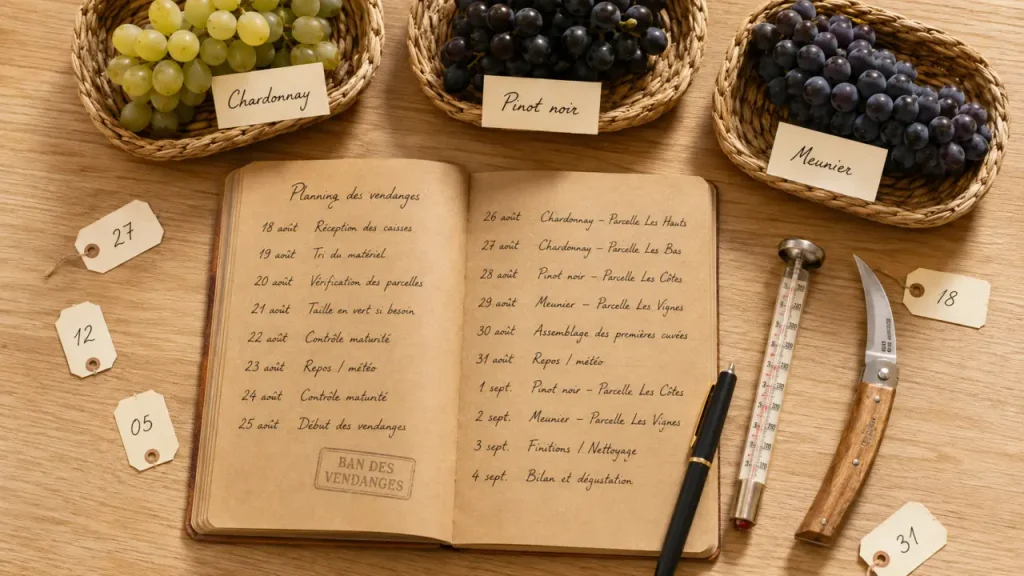 Chardonnay
Pinot noir
Meunier
Planning des vendanges
18 août Réception des caisses
19 août Tri du matériel
20 août Vérification des parcelles
21 août Taille en vert si besoin
22 août Contrôle maturité
23 août Repos / météo
24 août Contrôle maturité
25 août Début des vendanges
BAN DES
VENDANGES
26 août Chardonnay – Parcelle Les Hauts
27 août Chardonnay – Parcelle Les Bas
28 août Pinot noir – Parcelle Les Côtes
29 août Meunier – Parcelle Les Vignes
30 août Assemblage des premières cuvées
31 août Repos / météo
1 sept. Pinot noir – Parcelle Les Côtes
2 sept. Meunier – Parcelle Les Vignes
3 sept. Finitions / Nettoyage
4 sept. Bilan et dégustation
27
12
05
18
31